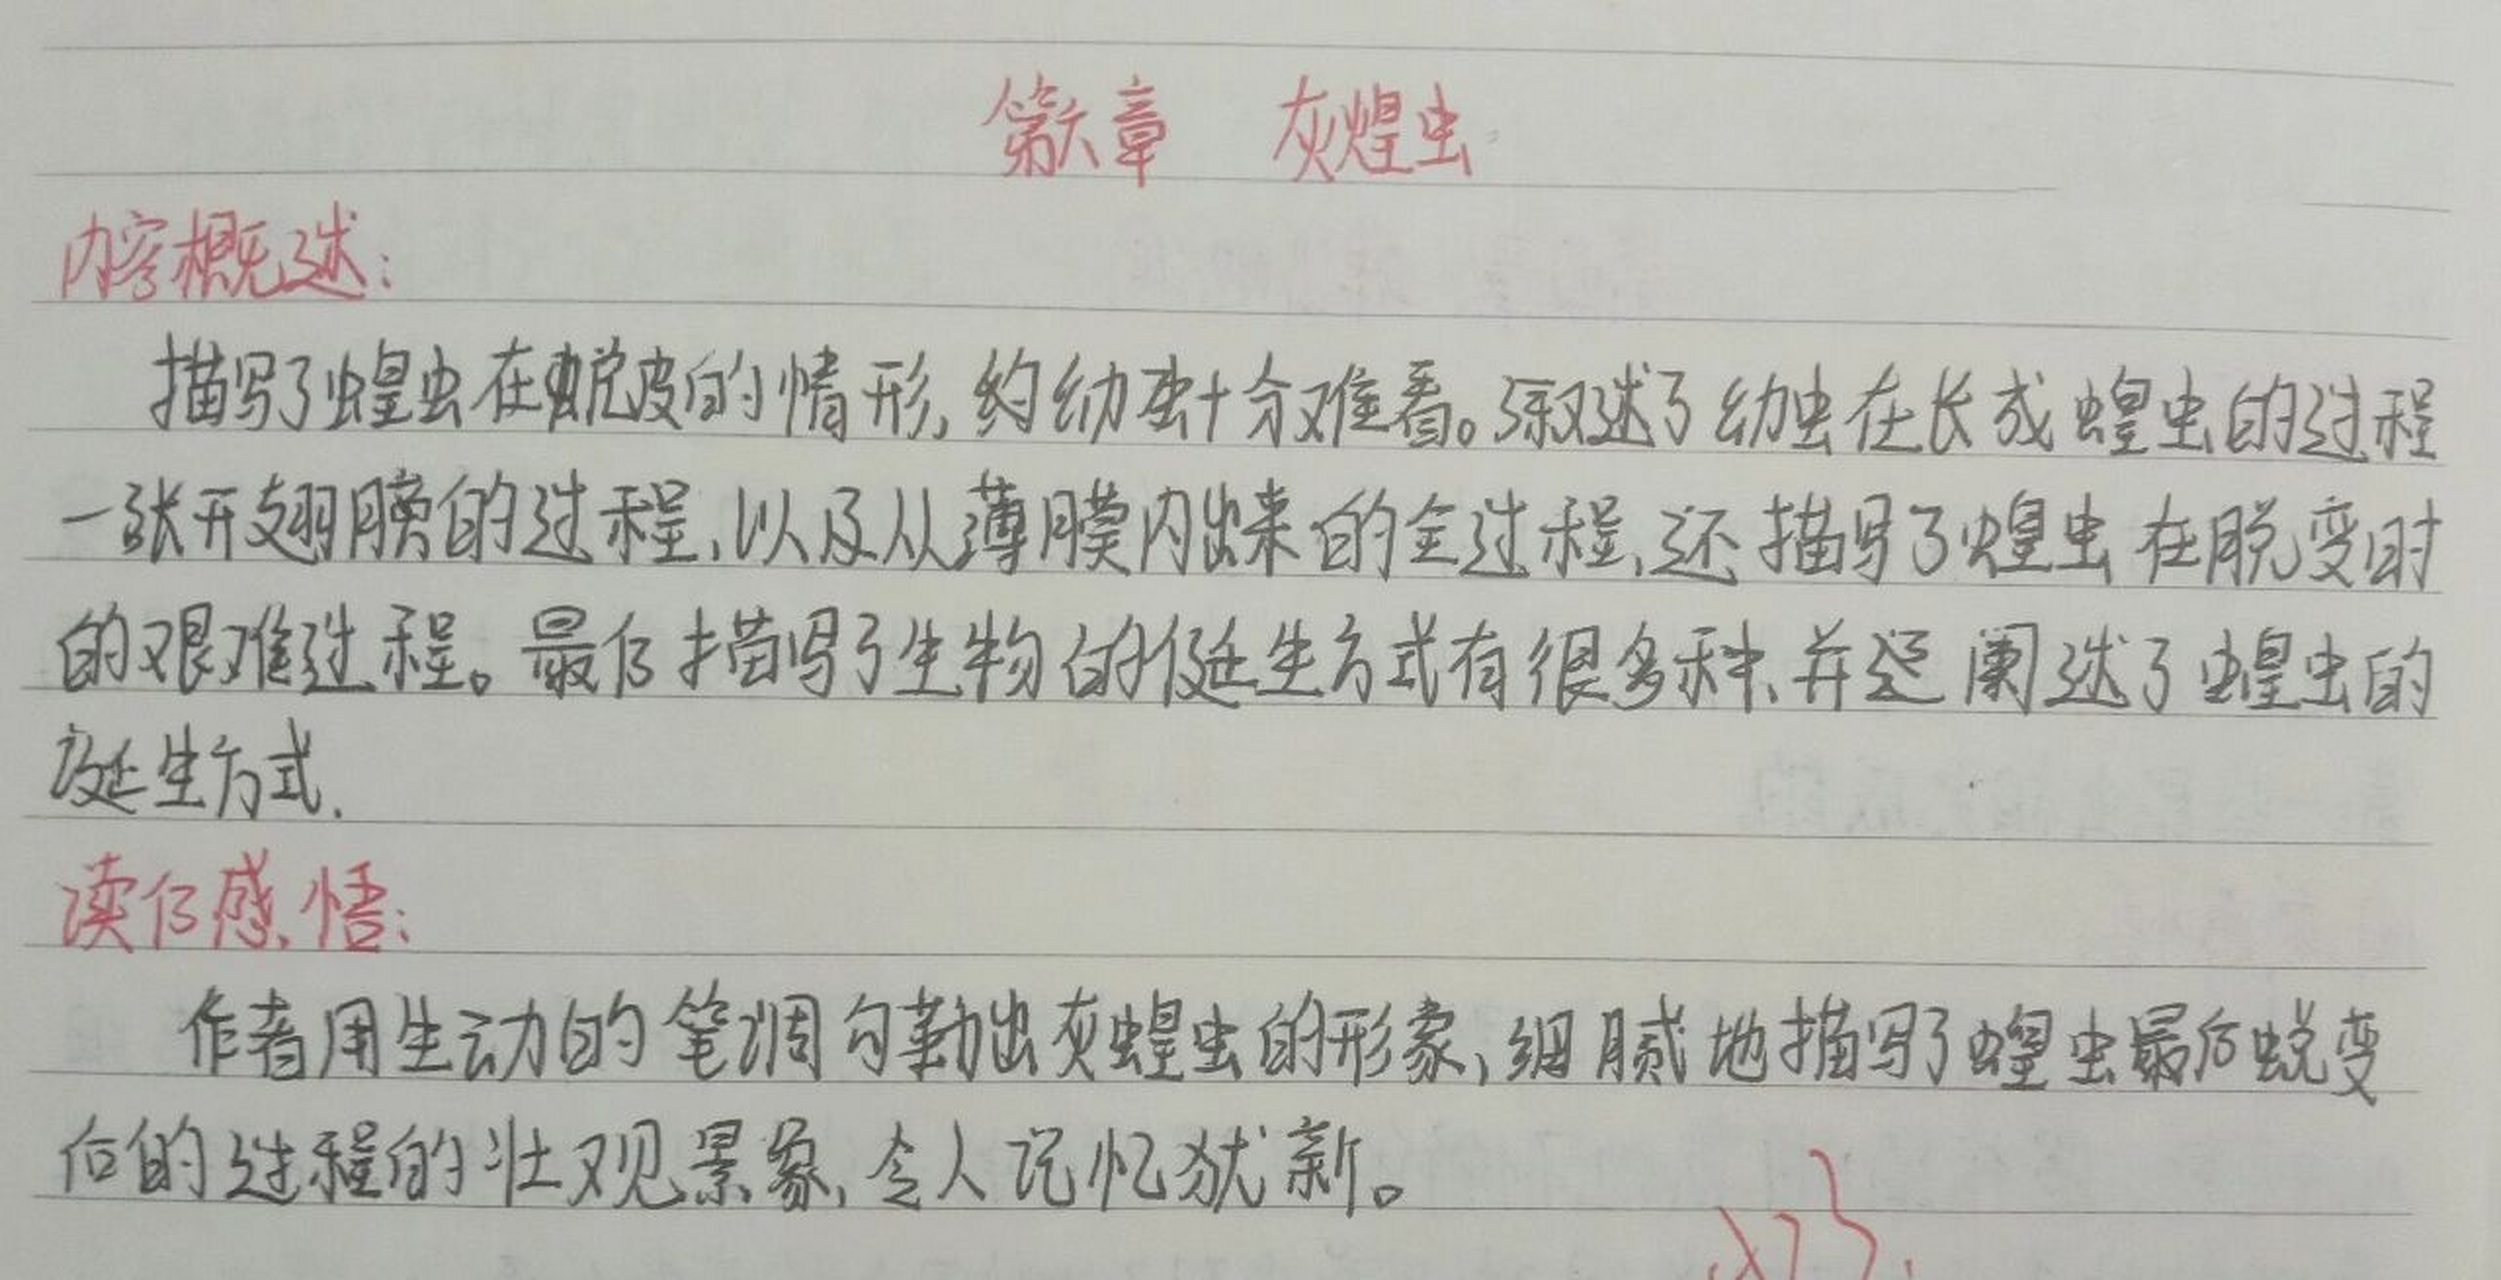 第六章 灰煌虫
内容概述:
描写了蝗虫在蜕皮的情形,约幼虫十分难看。叙述了幼虫在长成蝗虫的过程
一张开翅膀的过程,以及从薄膜内出来的全过程,还描写了蝗虫在脱变时
的艰难过程。最后描写了生物的诞生方式有很多种,并还阐述了蝗虫的
诞生方式.
读后感悟:
作者用生动的笔调勾勒出灰蝗虫的形象,细腻地描写了蝗虫最后蜕变
后的过程的壮观景象,令人记忆犹新。